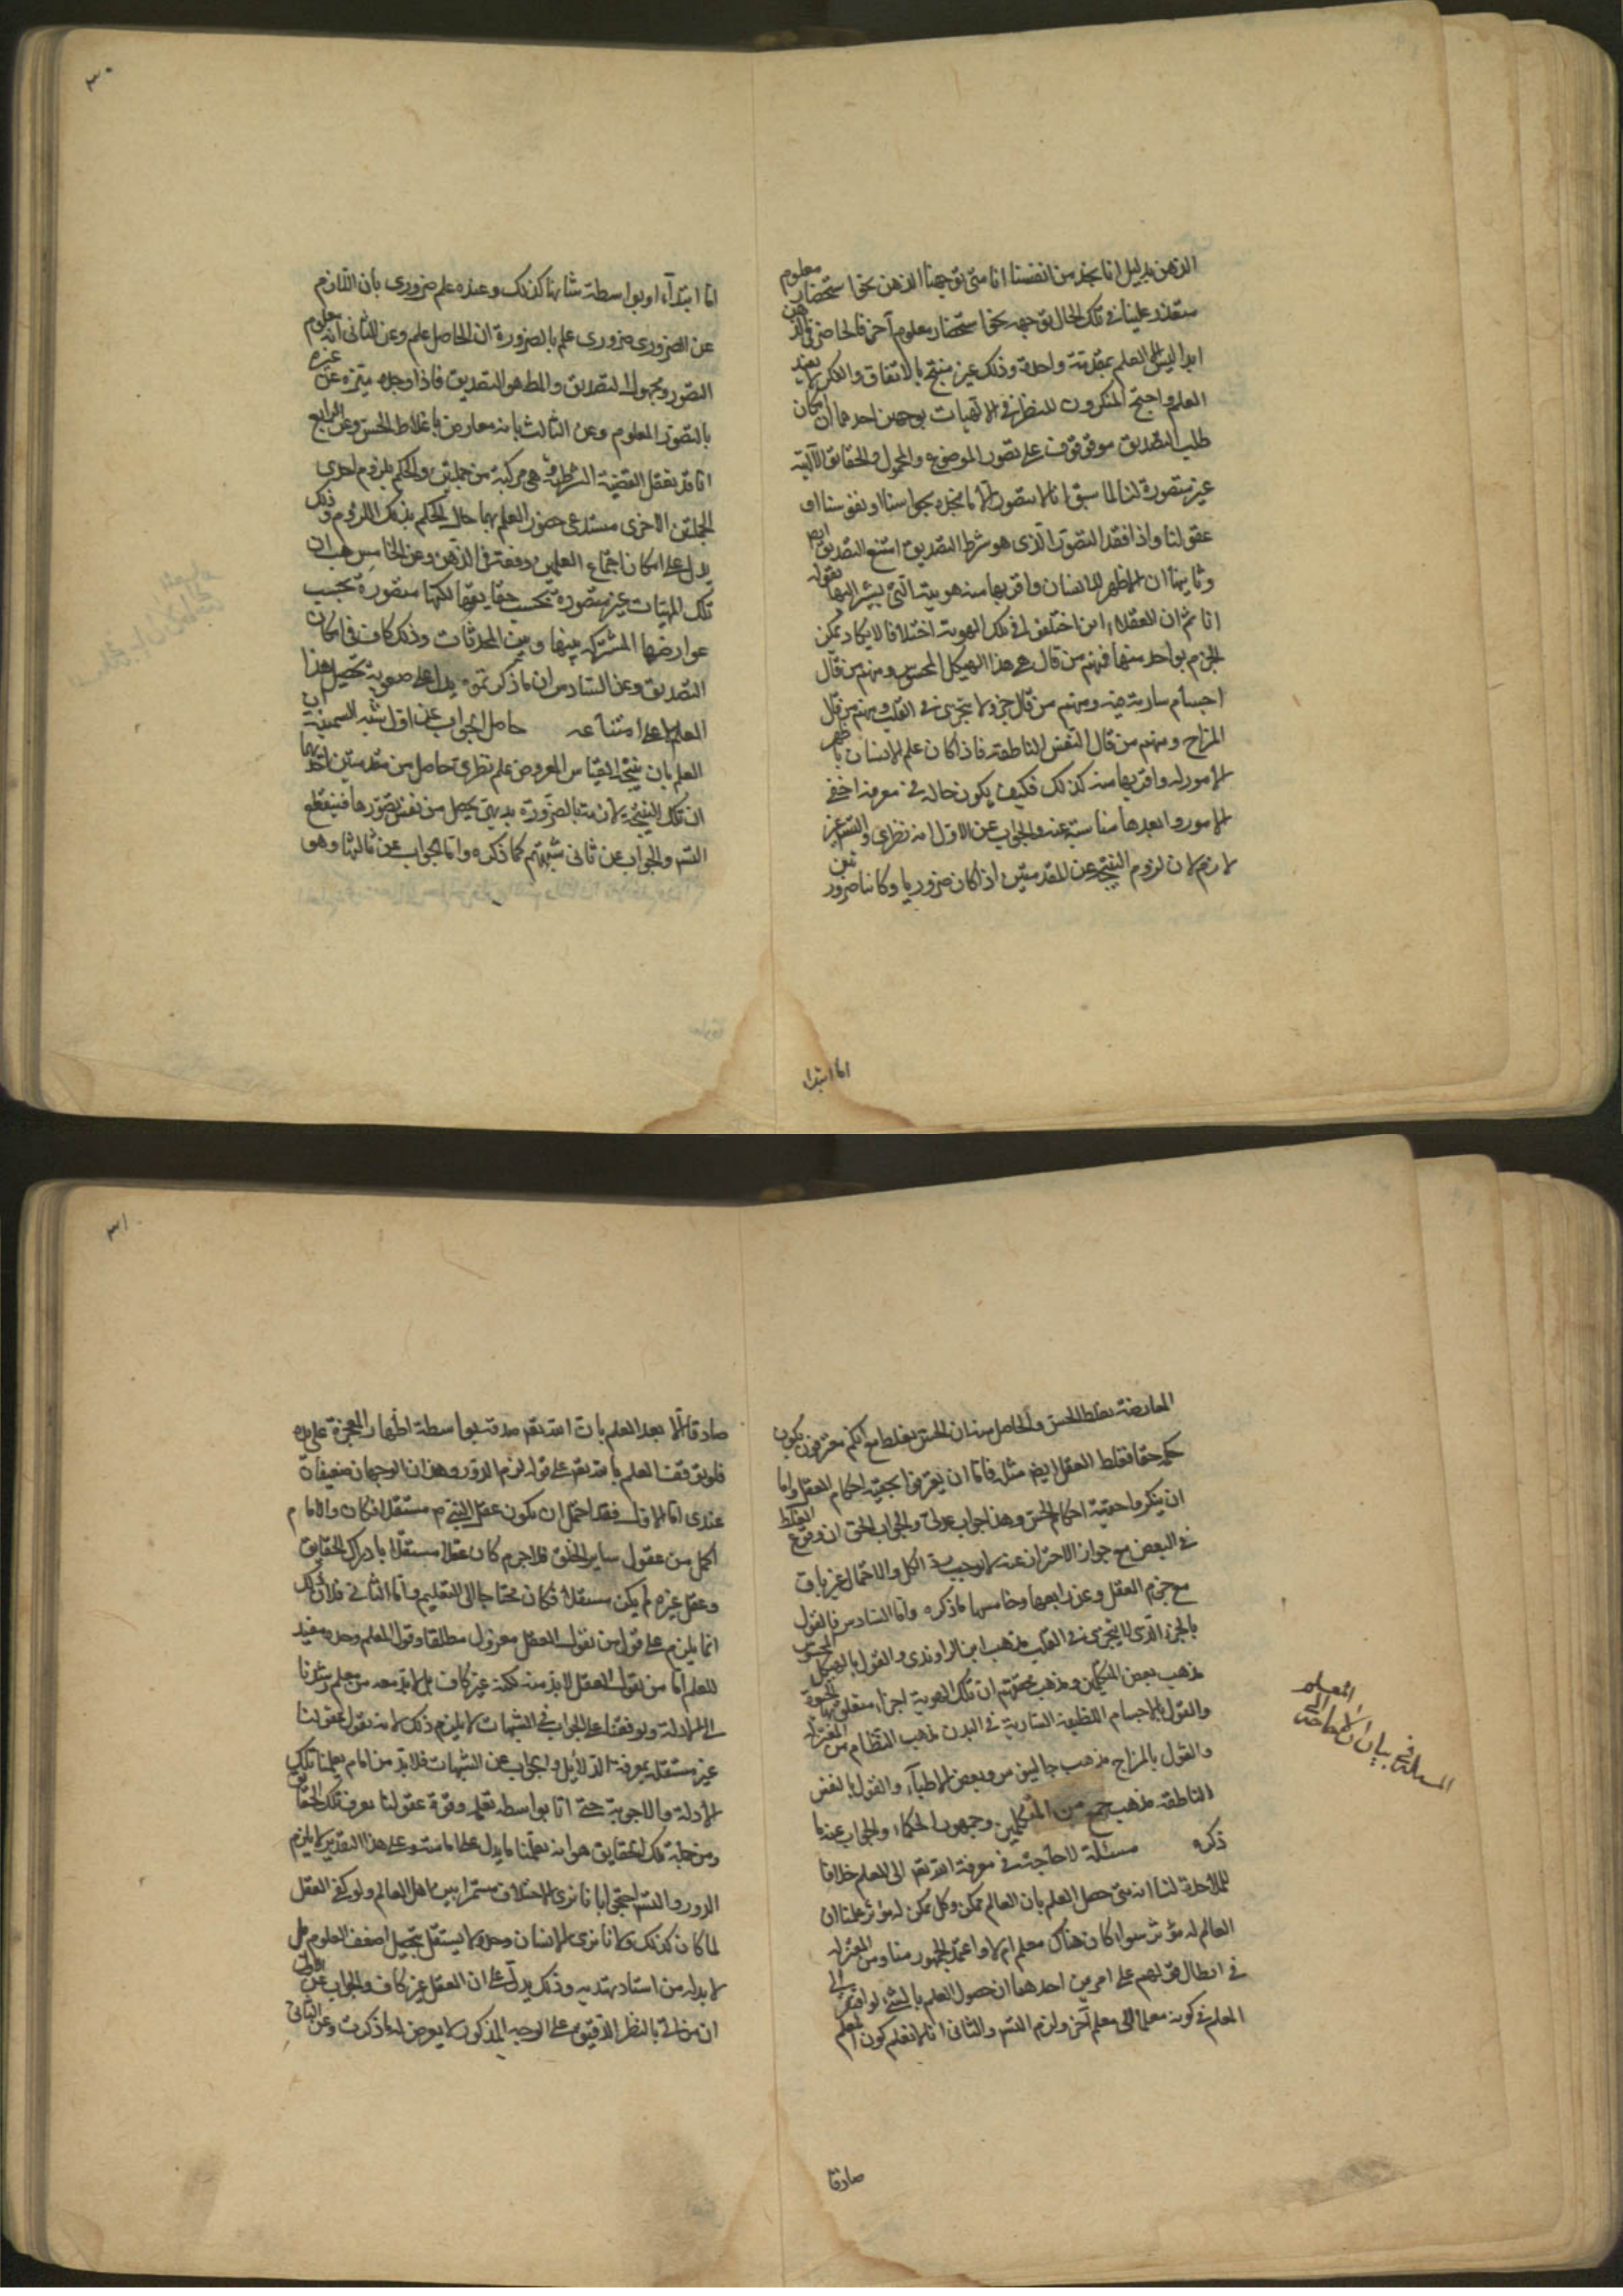 الذهن بدليل انا نجد من انفسنا انا متى توجهنا الذهن نحو استحضار معلوم
يتعذر علينا في تلك الحال توجيهه نحو استحضار معلوم آخر فالحاضر في الذهن
ابدا ليس الا العلم بمقدمة واحدة وذلك غير منتج بالاتفاق والفكر لا يفيد
العلم واحتج المنكرون للنظر في الالهيات بوجهين احدهما ان امكان
طلب التصديق موقوف على تصور الموضوع والمحمول والحقائق الآلهية
غير متصورة لنا لما سبق انا لا نتصور الا ما نجده بحواسنا او نفوسنا او
عقولنا واذا فقد التصور الذى هو شرط التصديق امتنع التصديق ايض
وثانيهما ان اظهر للانسان واقربها منه هويته التى يشير اليها بقوله
انا ثم ان العقلاء اختلفوا في تلك الهوية اختلافا لا يكاد يمكن
الجزم بواحد منها فمنهم من قال هي هذا الهيكل المحسوس ومنهم من قال
اجسام سارية فيه ومنهم من قال جزء لا يتجزى في القلب ومنهم من قال
المزاج ومنهم من قال النفس الناطقة فاذا كان علم الانسان باظهر
الامور له واقربها منه كذلك فكيف يكون حاله في معرفة اخفى
الامور وابعدها مناسبة عنه والجواب عن الاول انه نظرى والتسلسل غير
لازم لان لزوم النتيجة عن المقدمتين اذا كان ضروريا وكانتا ضروريتين
اما ابتدا
٣٠
اما ابتداء او بواسطة شانها كذلك وعنده علم ضرورى بان اللازم
عن الضرورى ضرورى علم بالضرورة ان الحاصل علم وعن الثانى انه معلوم
التصور ومجهول التصديق والمط هو التصديق فاذا وجده ميزه عن غيره
بالتصور المعلوم وعن الثالث بانه معارض باغلاط الحس وعن الرابع
انا قد نعقل القضية الشرطية وهى مركبة من جملتين والحكم بلزوم احدى
الجملتين الاخرى مستدعى حضور العلم بهما حال الحكم بذلك اللزوم وذلك
يدل على امكان اجتماع العلمين دفعة في الذهن وعن الخامس هب ان
تلك المهيات غير متصورة بحسب حقايقها لكنها متصورة بحسب
عوارضها المشتركه بينها وبين المحدثات وذلك كاف في امكان
التصديق وعن السادس ان ما ذكرتموه يدل على صعوبة تحصيل هذا
العلم لا على امتناعه حاصل الجواب عن اول شبه السمنية ان
العلم بان نتيجة القياس المعروض علم نظرى حاصل من مقدمتين احديهما
ان تلك النتيجة لازمة بالضرورة بديهى يحصل من نفس تصورها فينقطع
التسلسل والجواب عن ثانى شبهتهم كما ذكره واما الجواب عن ثالثها وهو
المعارضة بغلط الحس والحاصل منه ان الحس يغلط مع انكم معترفون بكون
حكمه حقا فغلط العقل ايض مثله فاما ان يعترفوا بحقية احكام العقل واما
ان ينكروا حقية احكام الحس وهذا جواب جدلى والجواب الحق ان وقوع الغلط
في البعض مع جواز الاحتراز عنه لا يوجب في الكل والاحتمال غير باق
مع جزم العقل وعن رابعها وخامسها ما ذكره واما السادس فالقول
بالجزء الذى لا يتجزى في القلب مذهب ابن الراوندى والقول بالهيكل المحسوس
مذهب بعض المتكلمين ومذهب محققيهم ان تلك الهوية اجزاء متعلق بها الحيوة
والقول بالاجسام اللطيفة السارية في البدن مذهب النظام من المعتزلة
والقول بالمزاج مذهب جالينوس وبعض الاطباء والقول بالنفس
الناطقة مذهب جمع من المتكلمين وجمهور الحكماء والجواب عنه ما
ذكره مسئلة لا حاجة في معرفة الله تعم الى المعلم خلافا
للملاحدة لنا انه متى حصل العلم بان العالم ممكن وكل ممكن له مؤثر علمنا ان
العالم له مؤثر سواء كان هناك معلم ام لا واعتمد الجمهور منا ومن المعتزله
في ابطال قولهم على امرين احدهما ان حصول العلم بالشئ لو افتقر الى
المعلم في كونه معلما الى معلم آخر ولزم التسلسل والثانى انا لا نعلم كون المعلم
صادقا
المسلة في بيان ان لا حاجة الى المعلم
٣١
صادقا الا بعد العلم بان الله تعم صدقه بواسطة اظهار المعجزة على يده
فلو توقف العلم بالله تعم على قوله لزم الدور وهذان الوجهان ضعيفان
عندى اما الاول فقد احتمل ان يكون عقل النبى م مستقلا فكان والامام
اكمل من عقول ساير الخلق فلا جرم كان عقله مستقلا بادراك الحقايق
وعقل غيره لم يكن مستقلا فكان محتاجا الى التعليم واما الثانى فلان ذلك
انما يلزم على قول من يقول العقل معزول مطلقا وقول المعلم وحده مفيد
للعلم اما من يقول العقل لا بد منه لكنه غير كاف بل لا بد معه من معلم يرشدنا
الى الادلة ويوقفنا على الجواب في الشبهات لا يلزم ذلك لانه يقول عقولنا
غير مستقله بمعرفة الدلائل والجواب عن الشبهات فلا بد من امام يعلمنا تلك
الادلة والاجوبة حتى انا بواسطة تعليمه وقوة عقولنا نعرف تلك الحقائق
ومن جملة تلك الحقايق هو انه يعلمنا ما يدل على امامته وعلى هذا التقدير لا يلزم
الدور والتسلسل احتجوا بانا نرى الاختلاف مستمرا بين اهل العالم ولو كفى العقل
لما كان كذلك ولانا نرى الانسان وحده لا يستقل بتحصيل اضعف العلوم بل
لا بد له من استاد يهديه وذلك يدل على ان العقل غير كاف والجواب عن الاول
ان من اتى بالنظر الدقيق على الوجه المذكور لا يعرض له ما ذكرت وعن الثانى